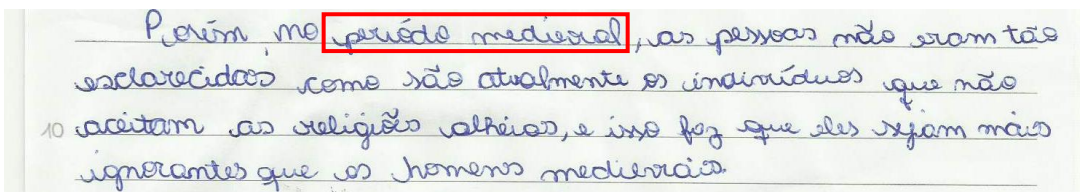 Porém no periódo medieval, as pessoas não eram tão
esclarecidas como são atualmente os indivíduos que não
10 aceitam as religiões alheias, e isso faz que eles sejam mais
ignorantes que os homens medievais.